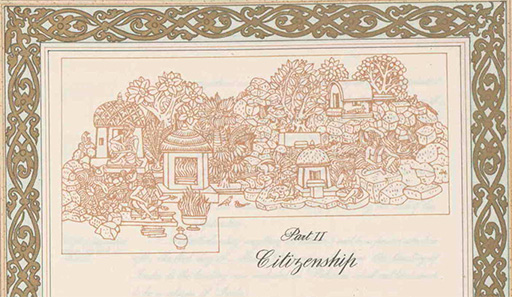 Part II
Citizenship